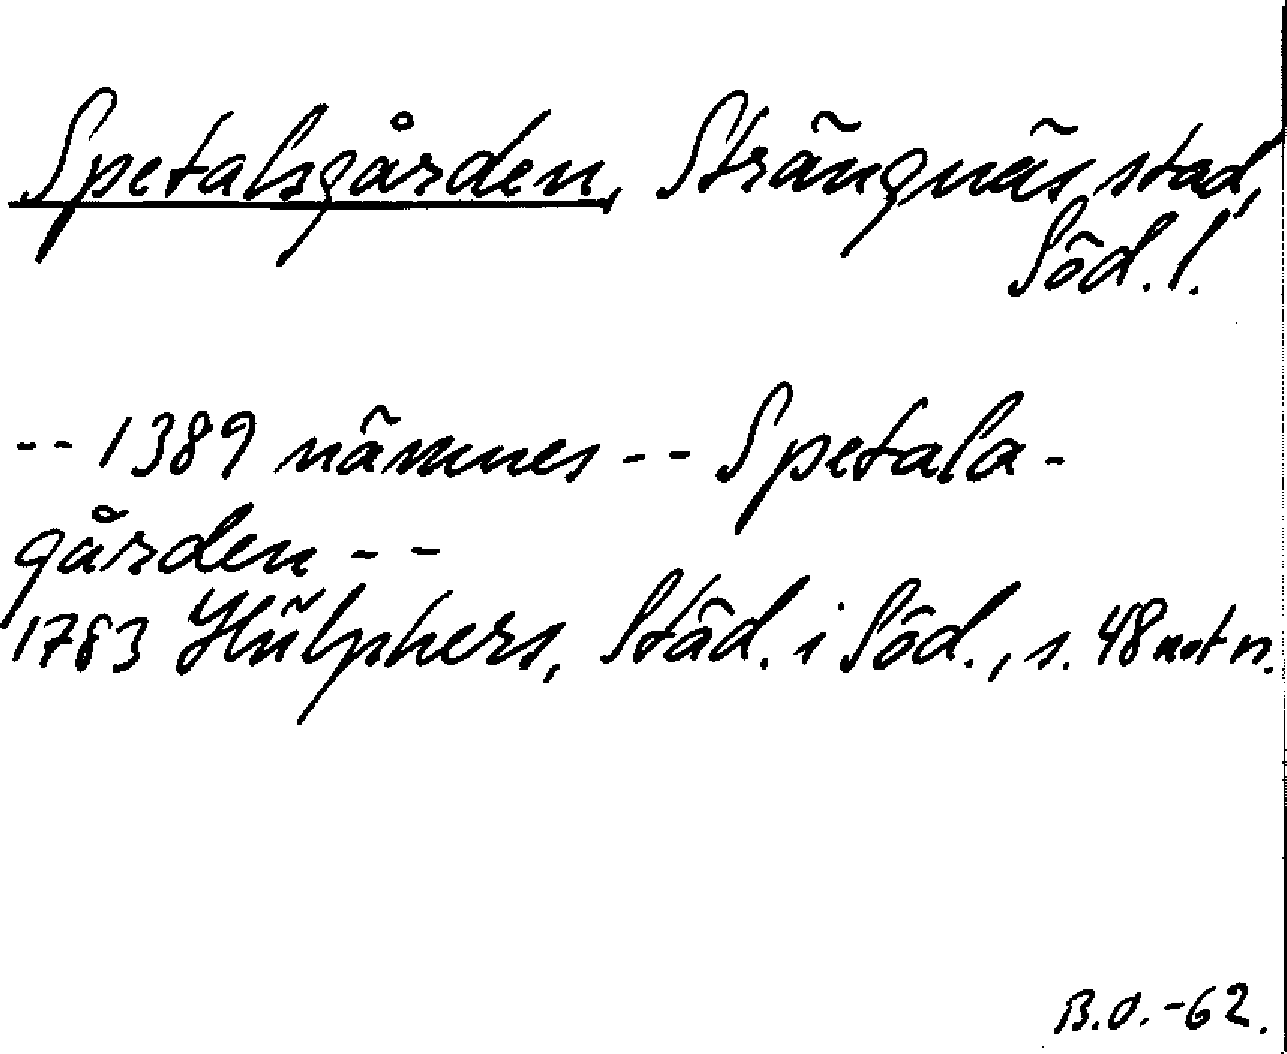 Spetalsgården, Strängnäs stad,
Söd. l.
-- 1389 nämnes -- Spetala-
gården --
1783 Hülphers, Städ. i Söd., s. 48 not n.
B.O. -62.